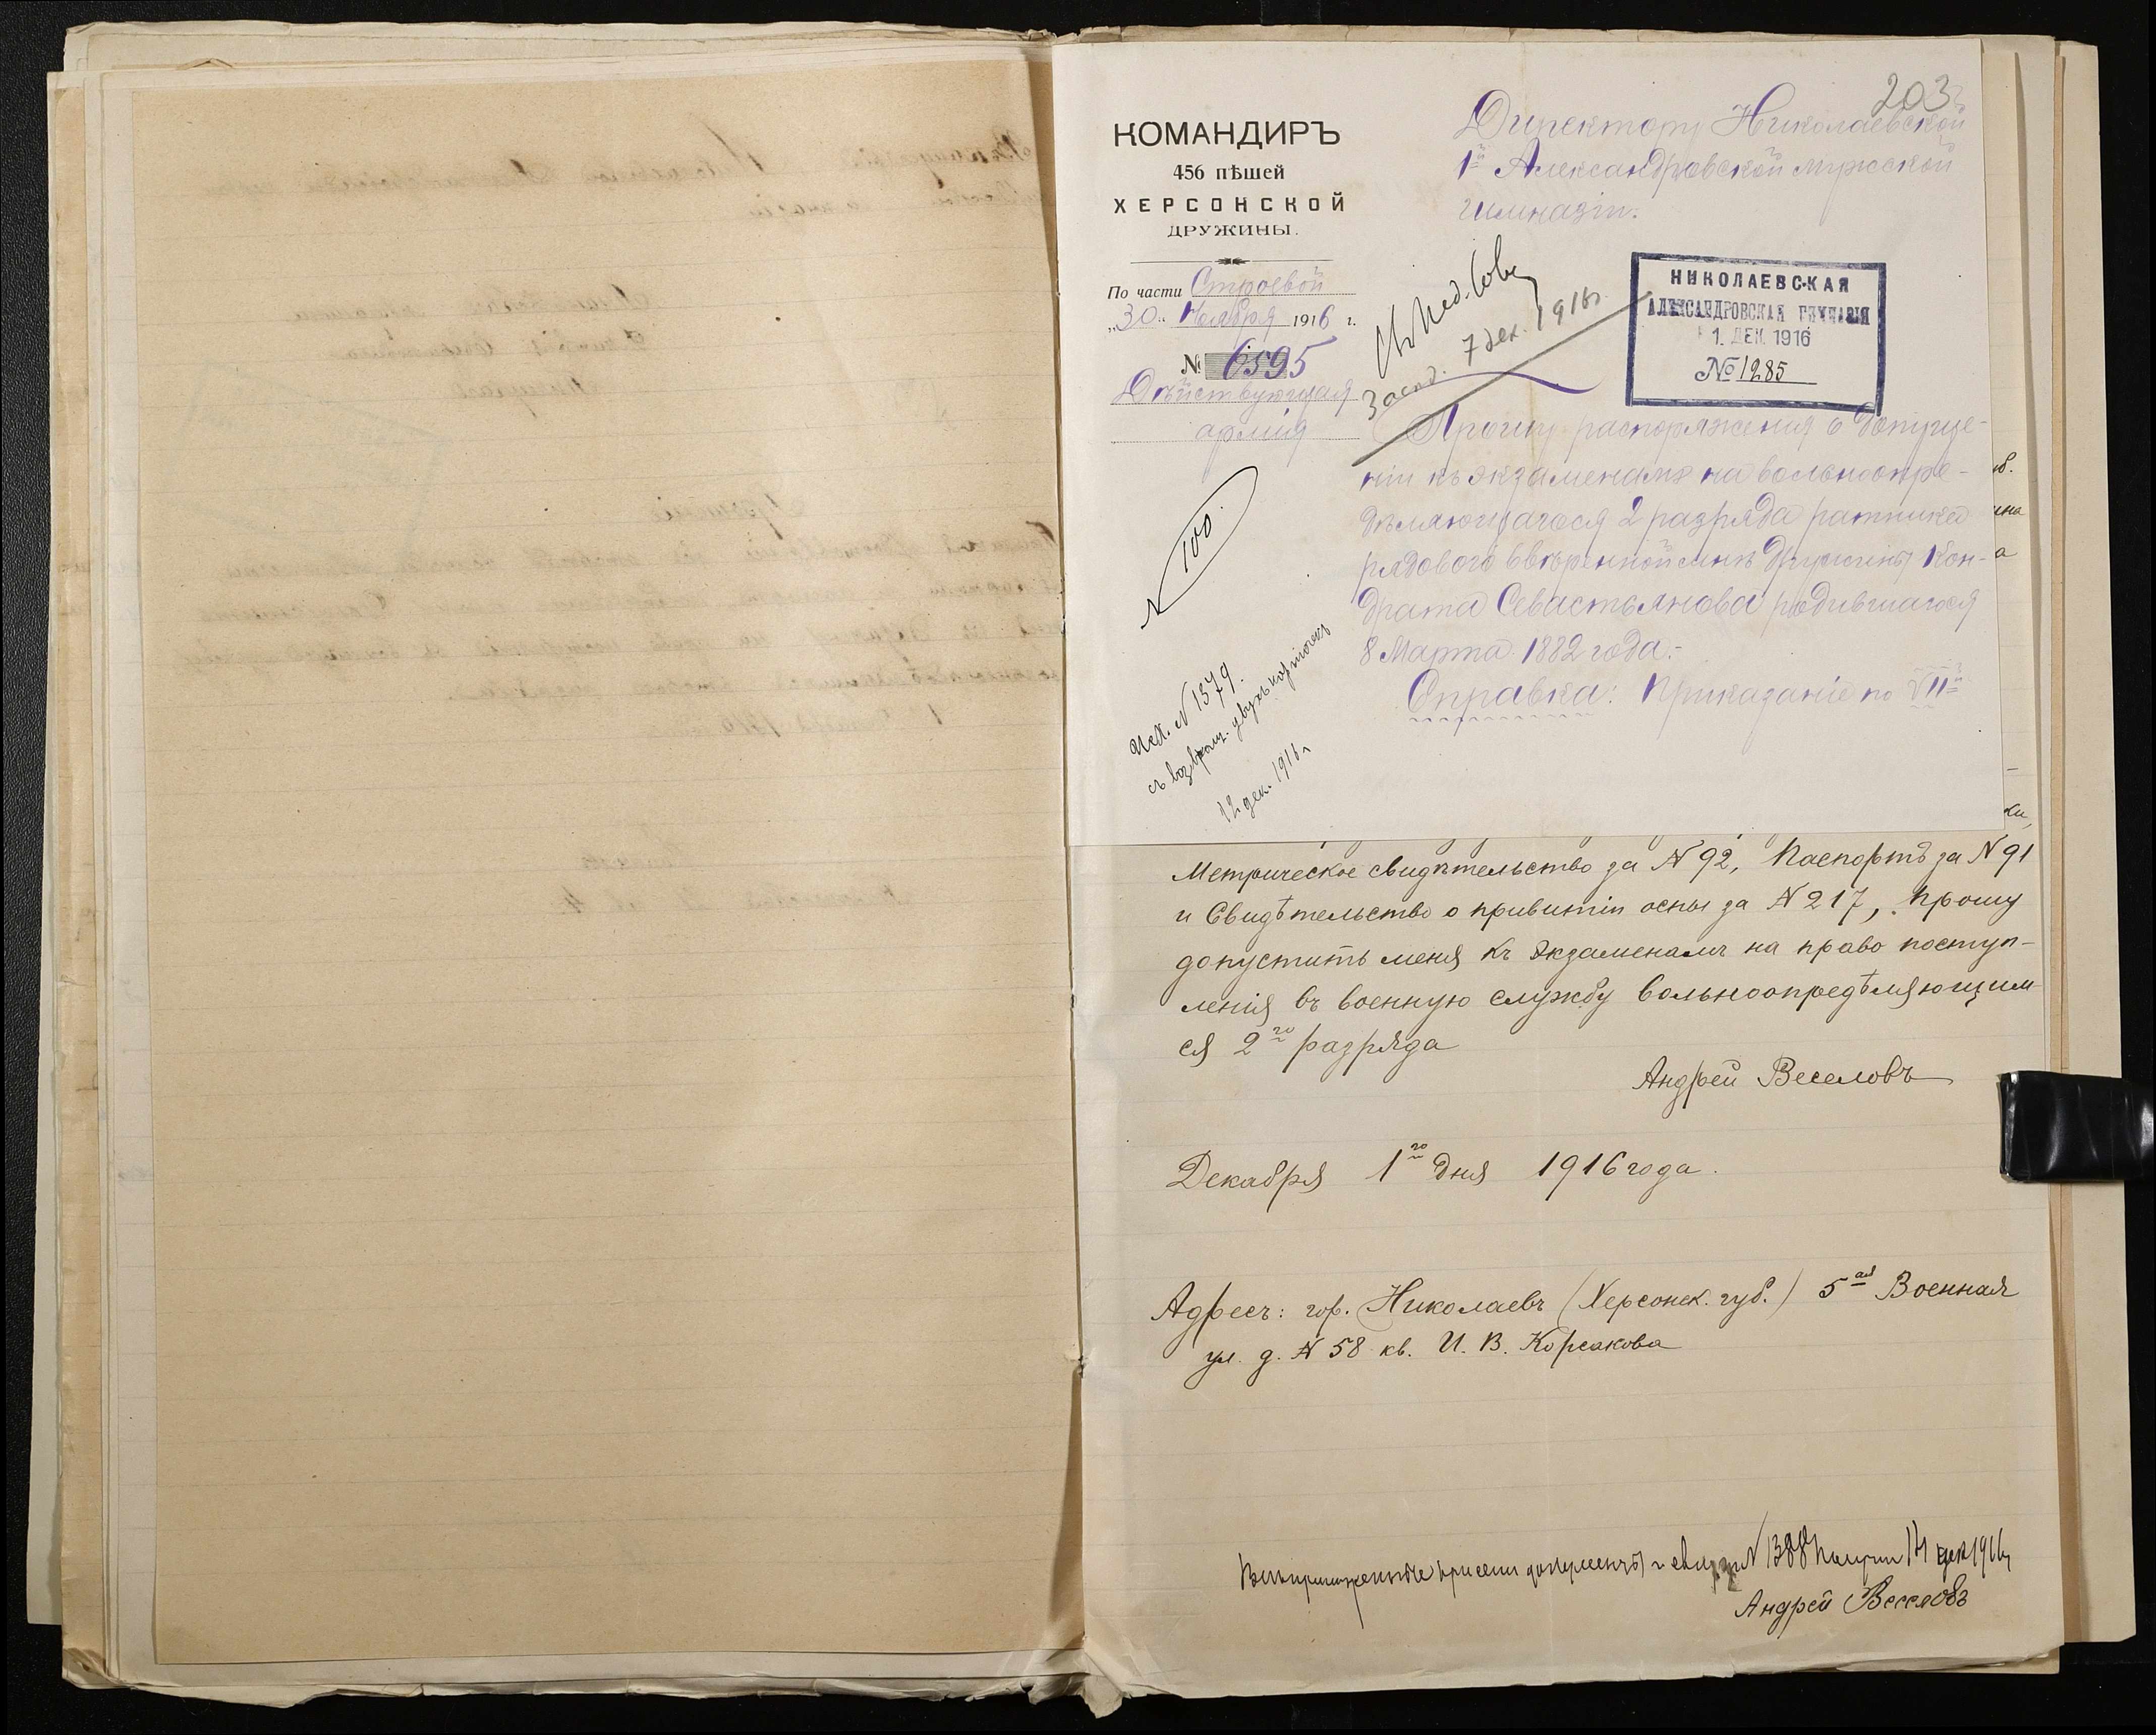 203
КОМАНДИРЪ
456 пѣшей
ХЕРСОНСКОЙ
ДРУЖИНЫ.
По части Строевой
„30„ Ноября 1916 г.
№ 6595
Дѣйствующая
армія
Директору Николаевской
1й Александровской мужской
гимназіи.
Засѣд. 7 дек. 1916 г.
НИКОЛАЕВСКАЯ
АЛЕКСАНДРОВСКАЯ ГИМНАЗІЯ
1. ДЕК. 1916
№ 1285
Прошу распоряженія о допуще-
ніи къ экзаменамъ на вольноопре-
дѣляющагося 2 разряда ратника
рядового ввѣренной мнѣ дружины Кон-
драта Севастьянова родившагося
8 Марта 1882 года.-
Справка: Приказаніе по VIIй
N 100.
Исп. N 1379.
съ возвращ. двухъ карточекъ
12 дек. 1916 г.
Метрическое свидѣтельство за N 92, Паспортъ за N 91
и Свидѣтельство о привитіи оспы за N 217, прошу
допустить меня къ экзаменамъ на право поступ-
ленія въ военную службу вольноопредѣляющим-
ся 2го разряда
Андрей Веселовъ
Декабря 1го дня 1916 года.
Адресъ: гор. Николаевъ (Херсонск. губ.) 5ая Военная
ул. д. N 58 кв. И. В. Корсакова
документы N 1388 14 дек 1916 г
Андрей Веселовъ